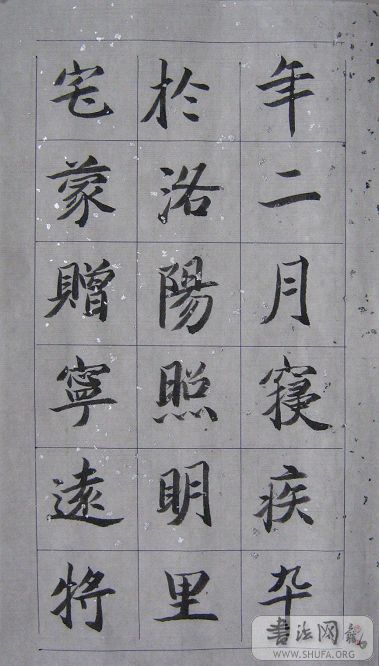 年二月寢疾卆
於洛陽照明里
宅蒙贈寧遠將
書法网
WWW.SHUFA.ORG